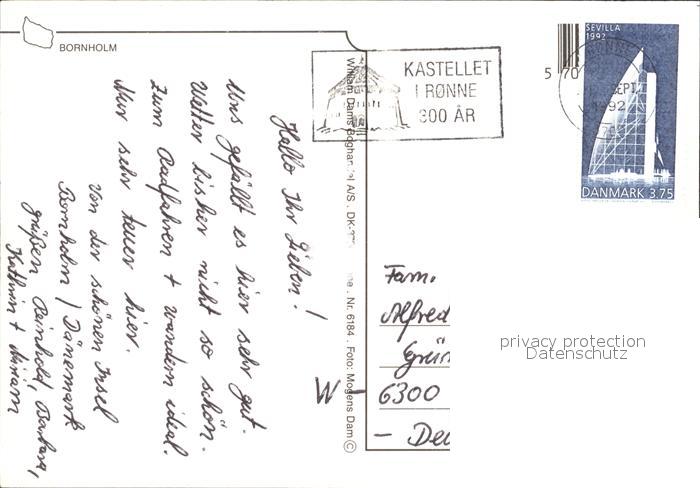 BORNHOLM
Hallo Ihr Lieben!
Uns gefällt es hier sehr gut.
Wetter bisher nicht so schön.
Zum Radfahren + wandern ideal.
Nur sehr teuer hier.
Von der schönen Insel
Bornholm / Dänemark
grüßen Reinhold, Barbara,
Kathrin + Miriam
William Dams Boghandel A/S . DK-37
. Nr. 6184 . Foto: Mogens Dam ©
KASTELLET
I RØNNE
300 ÅR
5 70
SEVILLA
1992
RØNNE
SEPT.
1992
DANMARK 3.75
Fam.
Alfred
Grün
W-6300
- Deu
privacy protection
Datenschutz